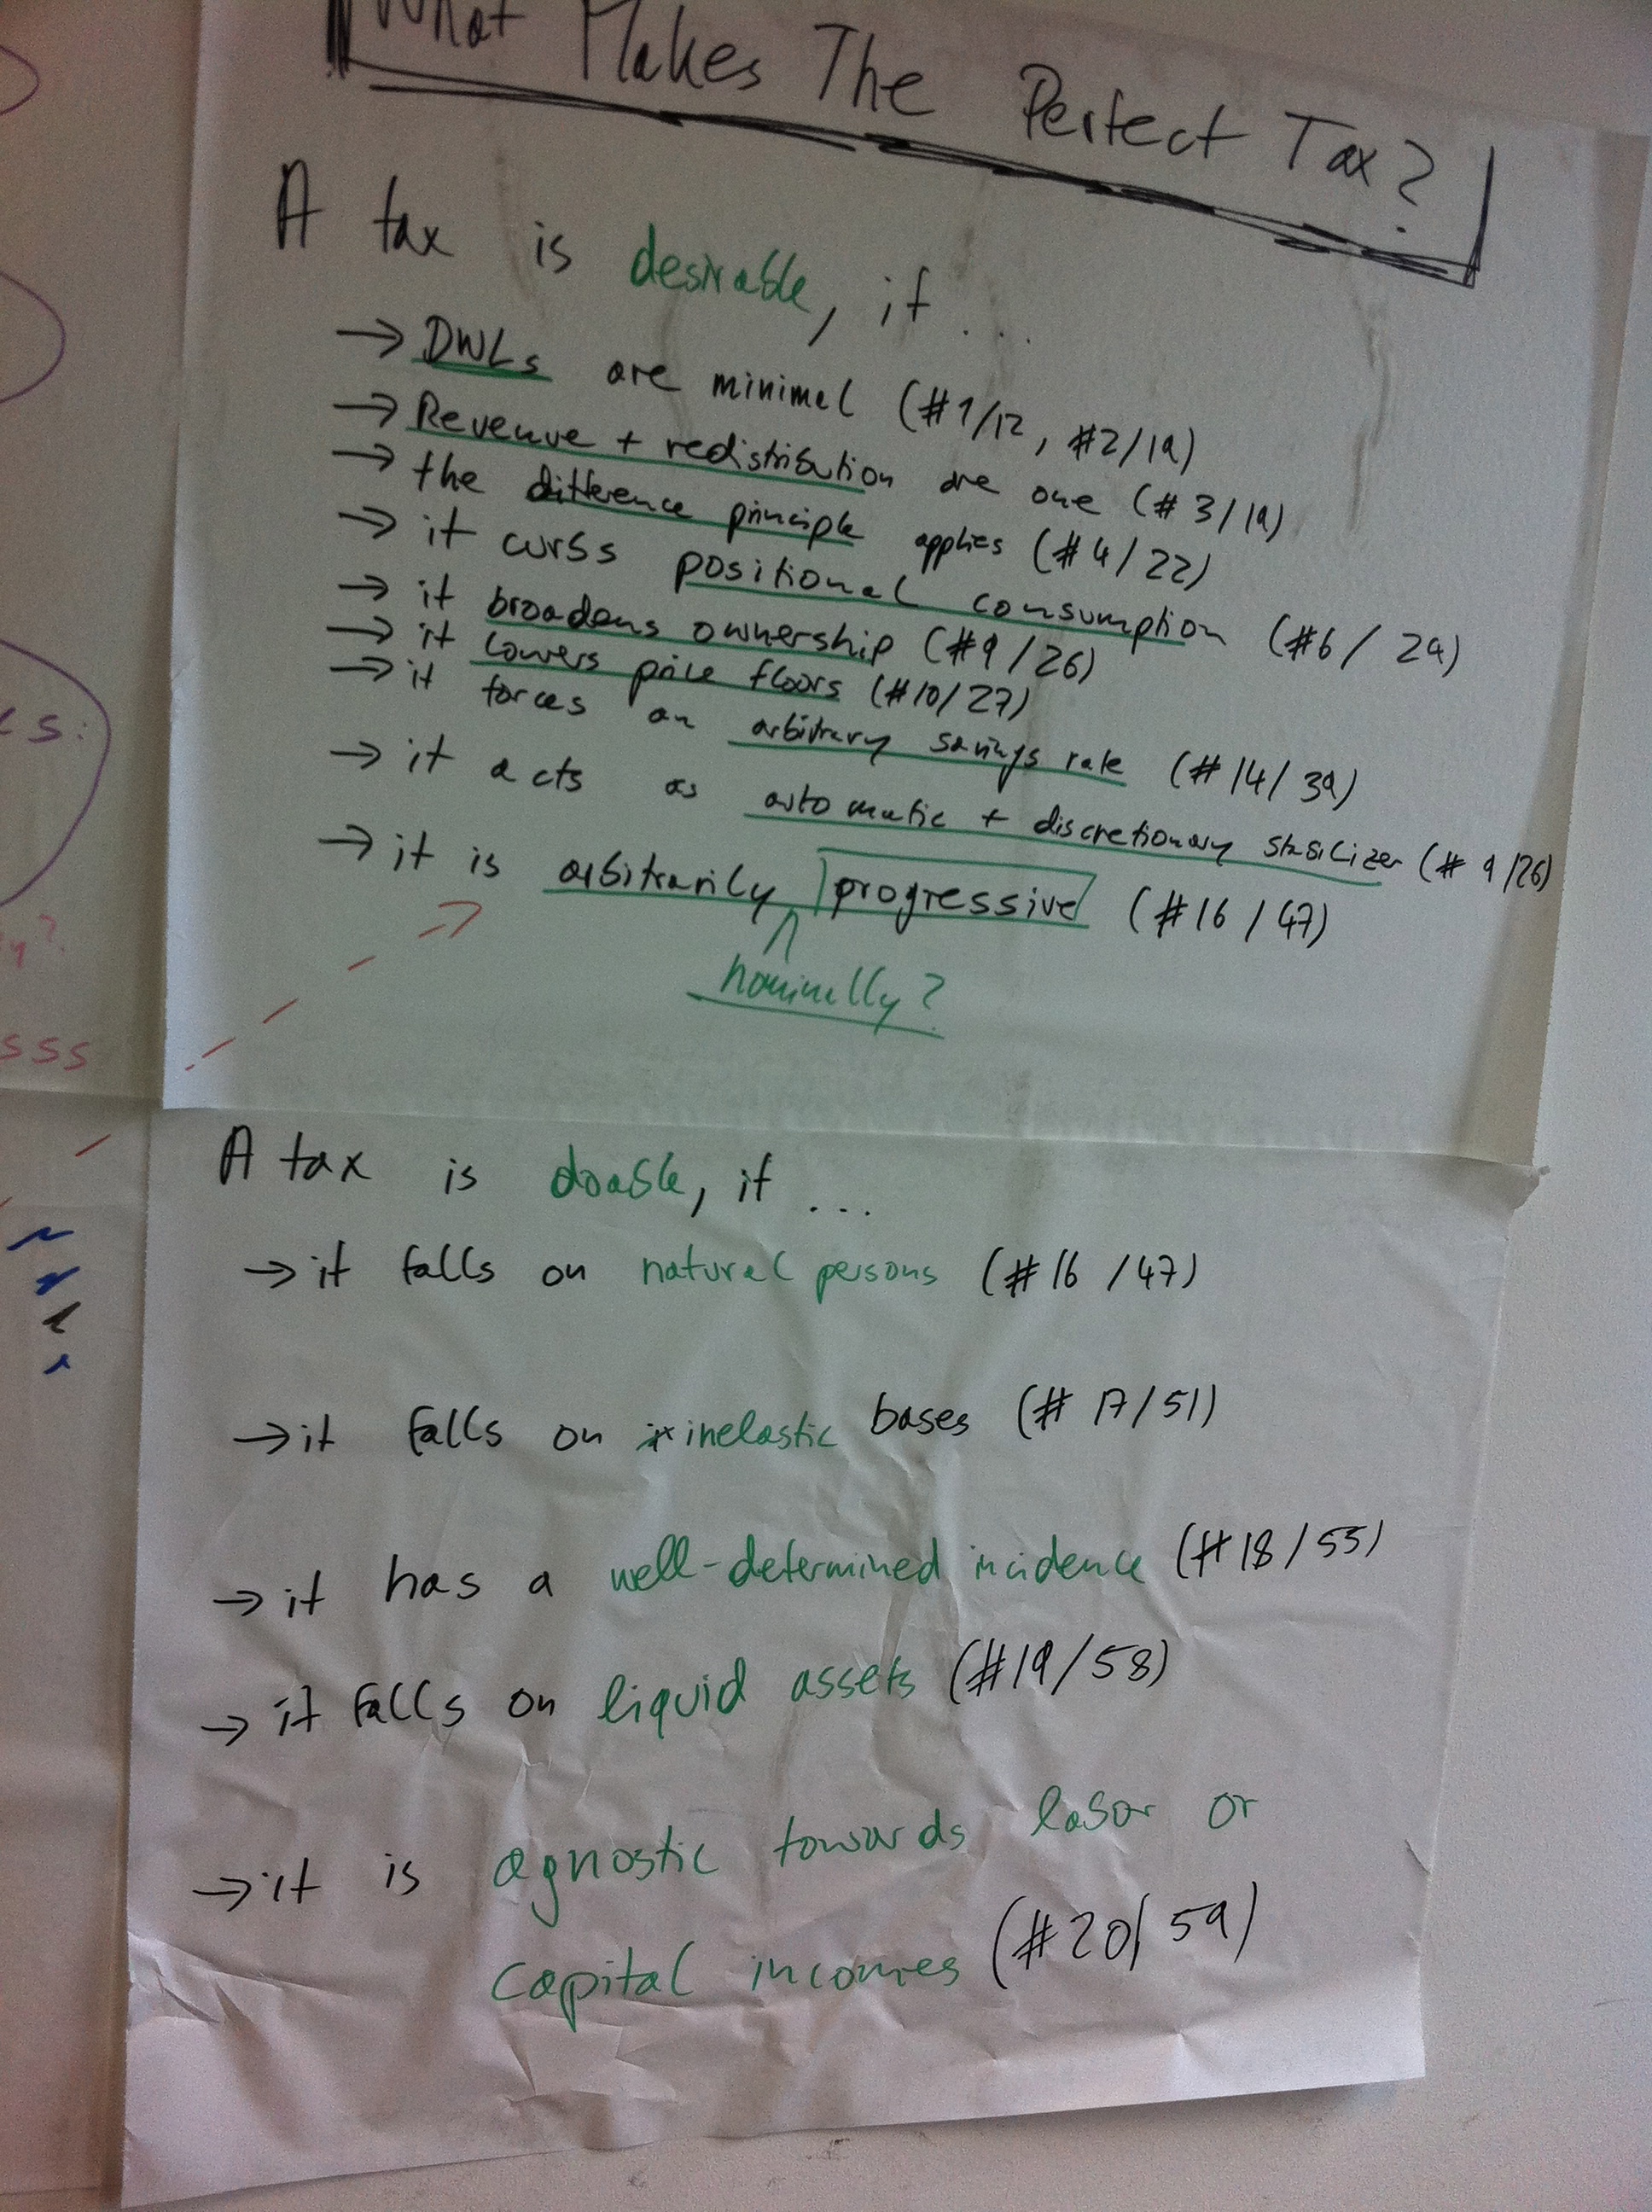 What Makes The Perfect Tax?
A tax is desirable, if ...
→ DWLs are minimal (#1/12, #2/19)
→ Revenue + redistribution are one (#3/19)
→ the difference principle applies (#4/22)
→ it curbs positional consumption (#6/29)
→ it broadens ownership (#9/26)
→ it lowers price floors (#10/27)
→ it forces an arbitrary savings rate (#14/39)
→ it acts as automatic + discretionary stabilizer (#9/26)
→ it is arbitrarily progressive (#16/47)
nominally?
A tax is doable, if ...
→ it falls on natural persons (#16/47)
→ it falls on inelastic bases (#17/51)
→ it has a well-determined incidence (#18/55)
→ it falls on liquid assets (#19/58)
→ it is agnostic towards labor or
capital incomes (#20/59)